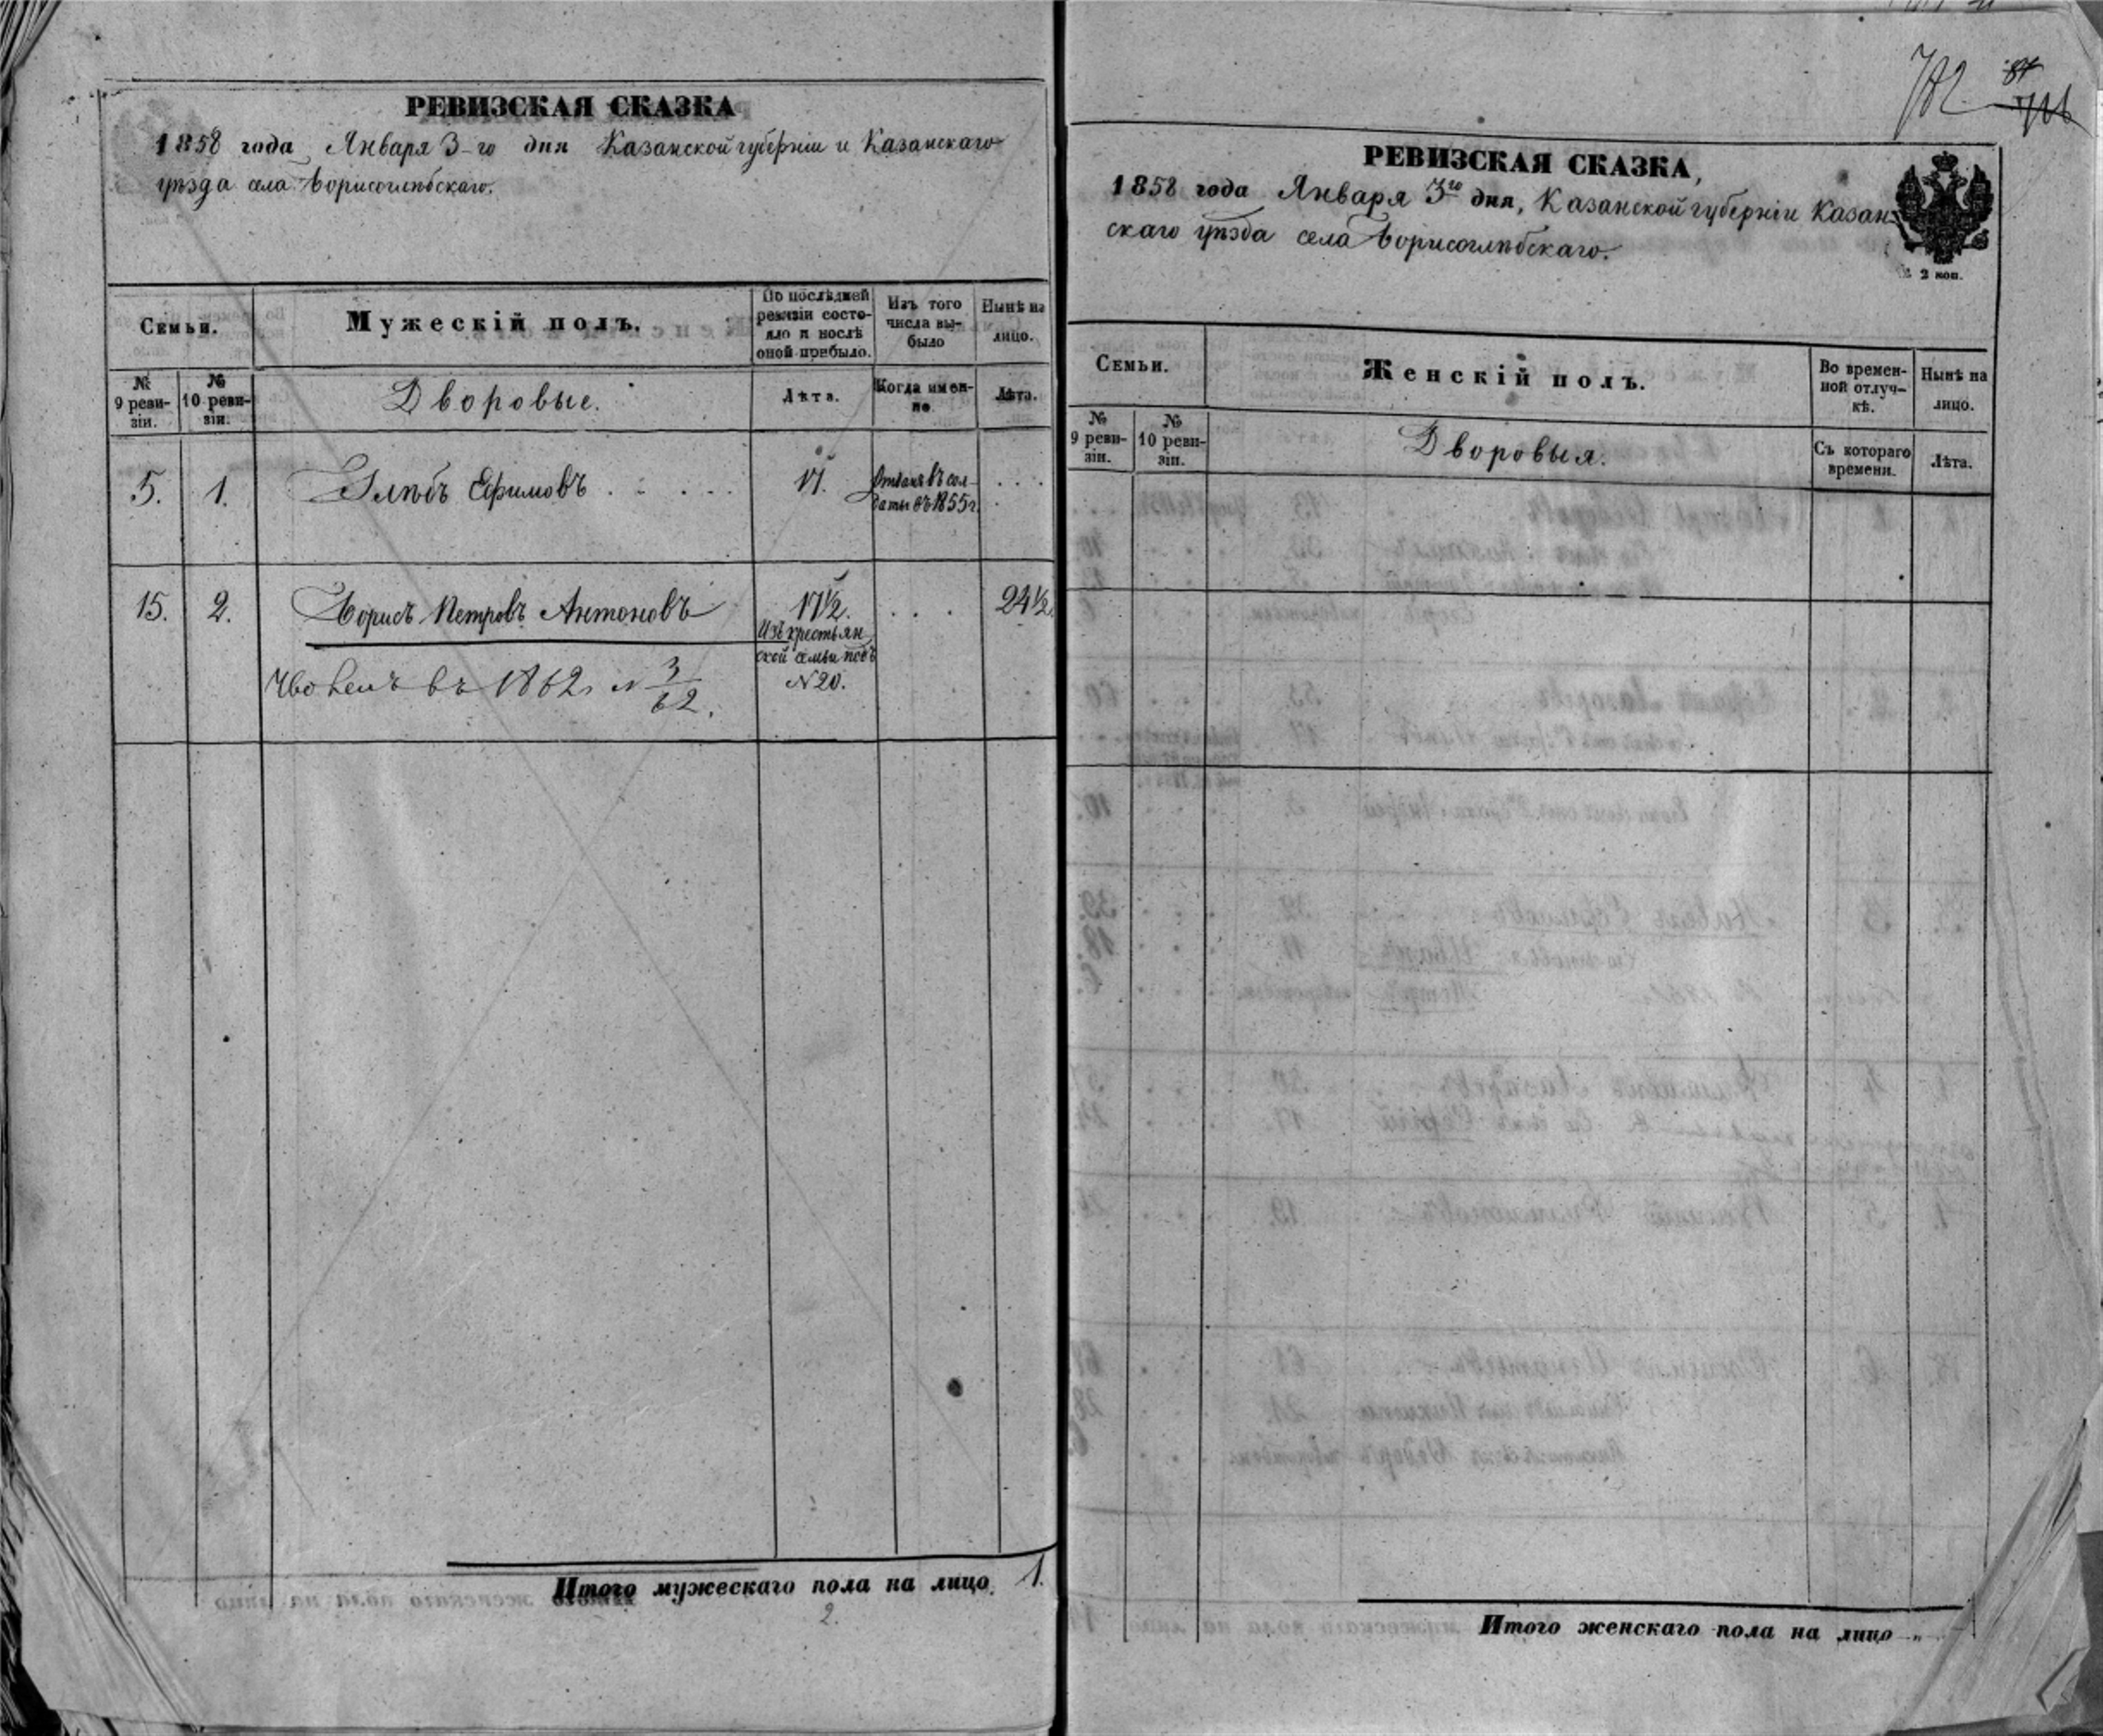 РЕВИЗСКАЯ СКАЗКА
1858 года Января 3-го дня Казанской губерніи и Казанскаго
уѣзда села Борисоглѣбскаго.
Семьи.
Мужескій полъ.
По послѣдней
ревизіи состо-
яло и послѣ
оной прибыло.
Изъ того
числа вы-
было
Нынѣ на
лицо.
№
9 реви-
зіи.
№
10 реви-
зіи.
Дворовые.
Лѣта.
Когда имен-
но.
Лѣта.
5. 1. Глѣбъ Ефимовъ . . . . . 17. Отданъ въ сол- . . .
даты въ 1855 г.
15. 2. Борисъ Петровъ Антоновъ 17½. . . . 24½.
Изъ крестьян
ской семьи подъ
№ 20.
въ 1862 № 3/62.
Итого мужескаго пола на лицо. 1.
2.
782. 87
РЕВИЗСКАЯ СКАЗКА,
1858 года Января 3го дня, Казанской губерніи Казан-
скаго уѣзда села Борисоглѣбскаго.
2 коп.
Семьи.
Женскій полъ.
Во времен-
ной отлуч-
кѣ.
Нынѣ на
лицо.
№
9 реви-
зіи.
№
10 реви-
зіи.
Дворовыя.
Съ котораго
времени.
Лѣта.
Итого женскаго пола на лицо „